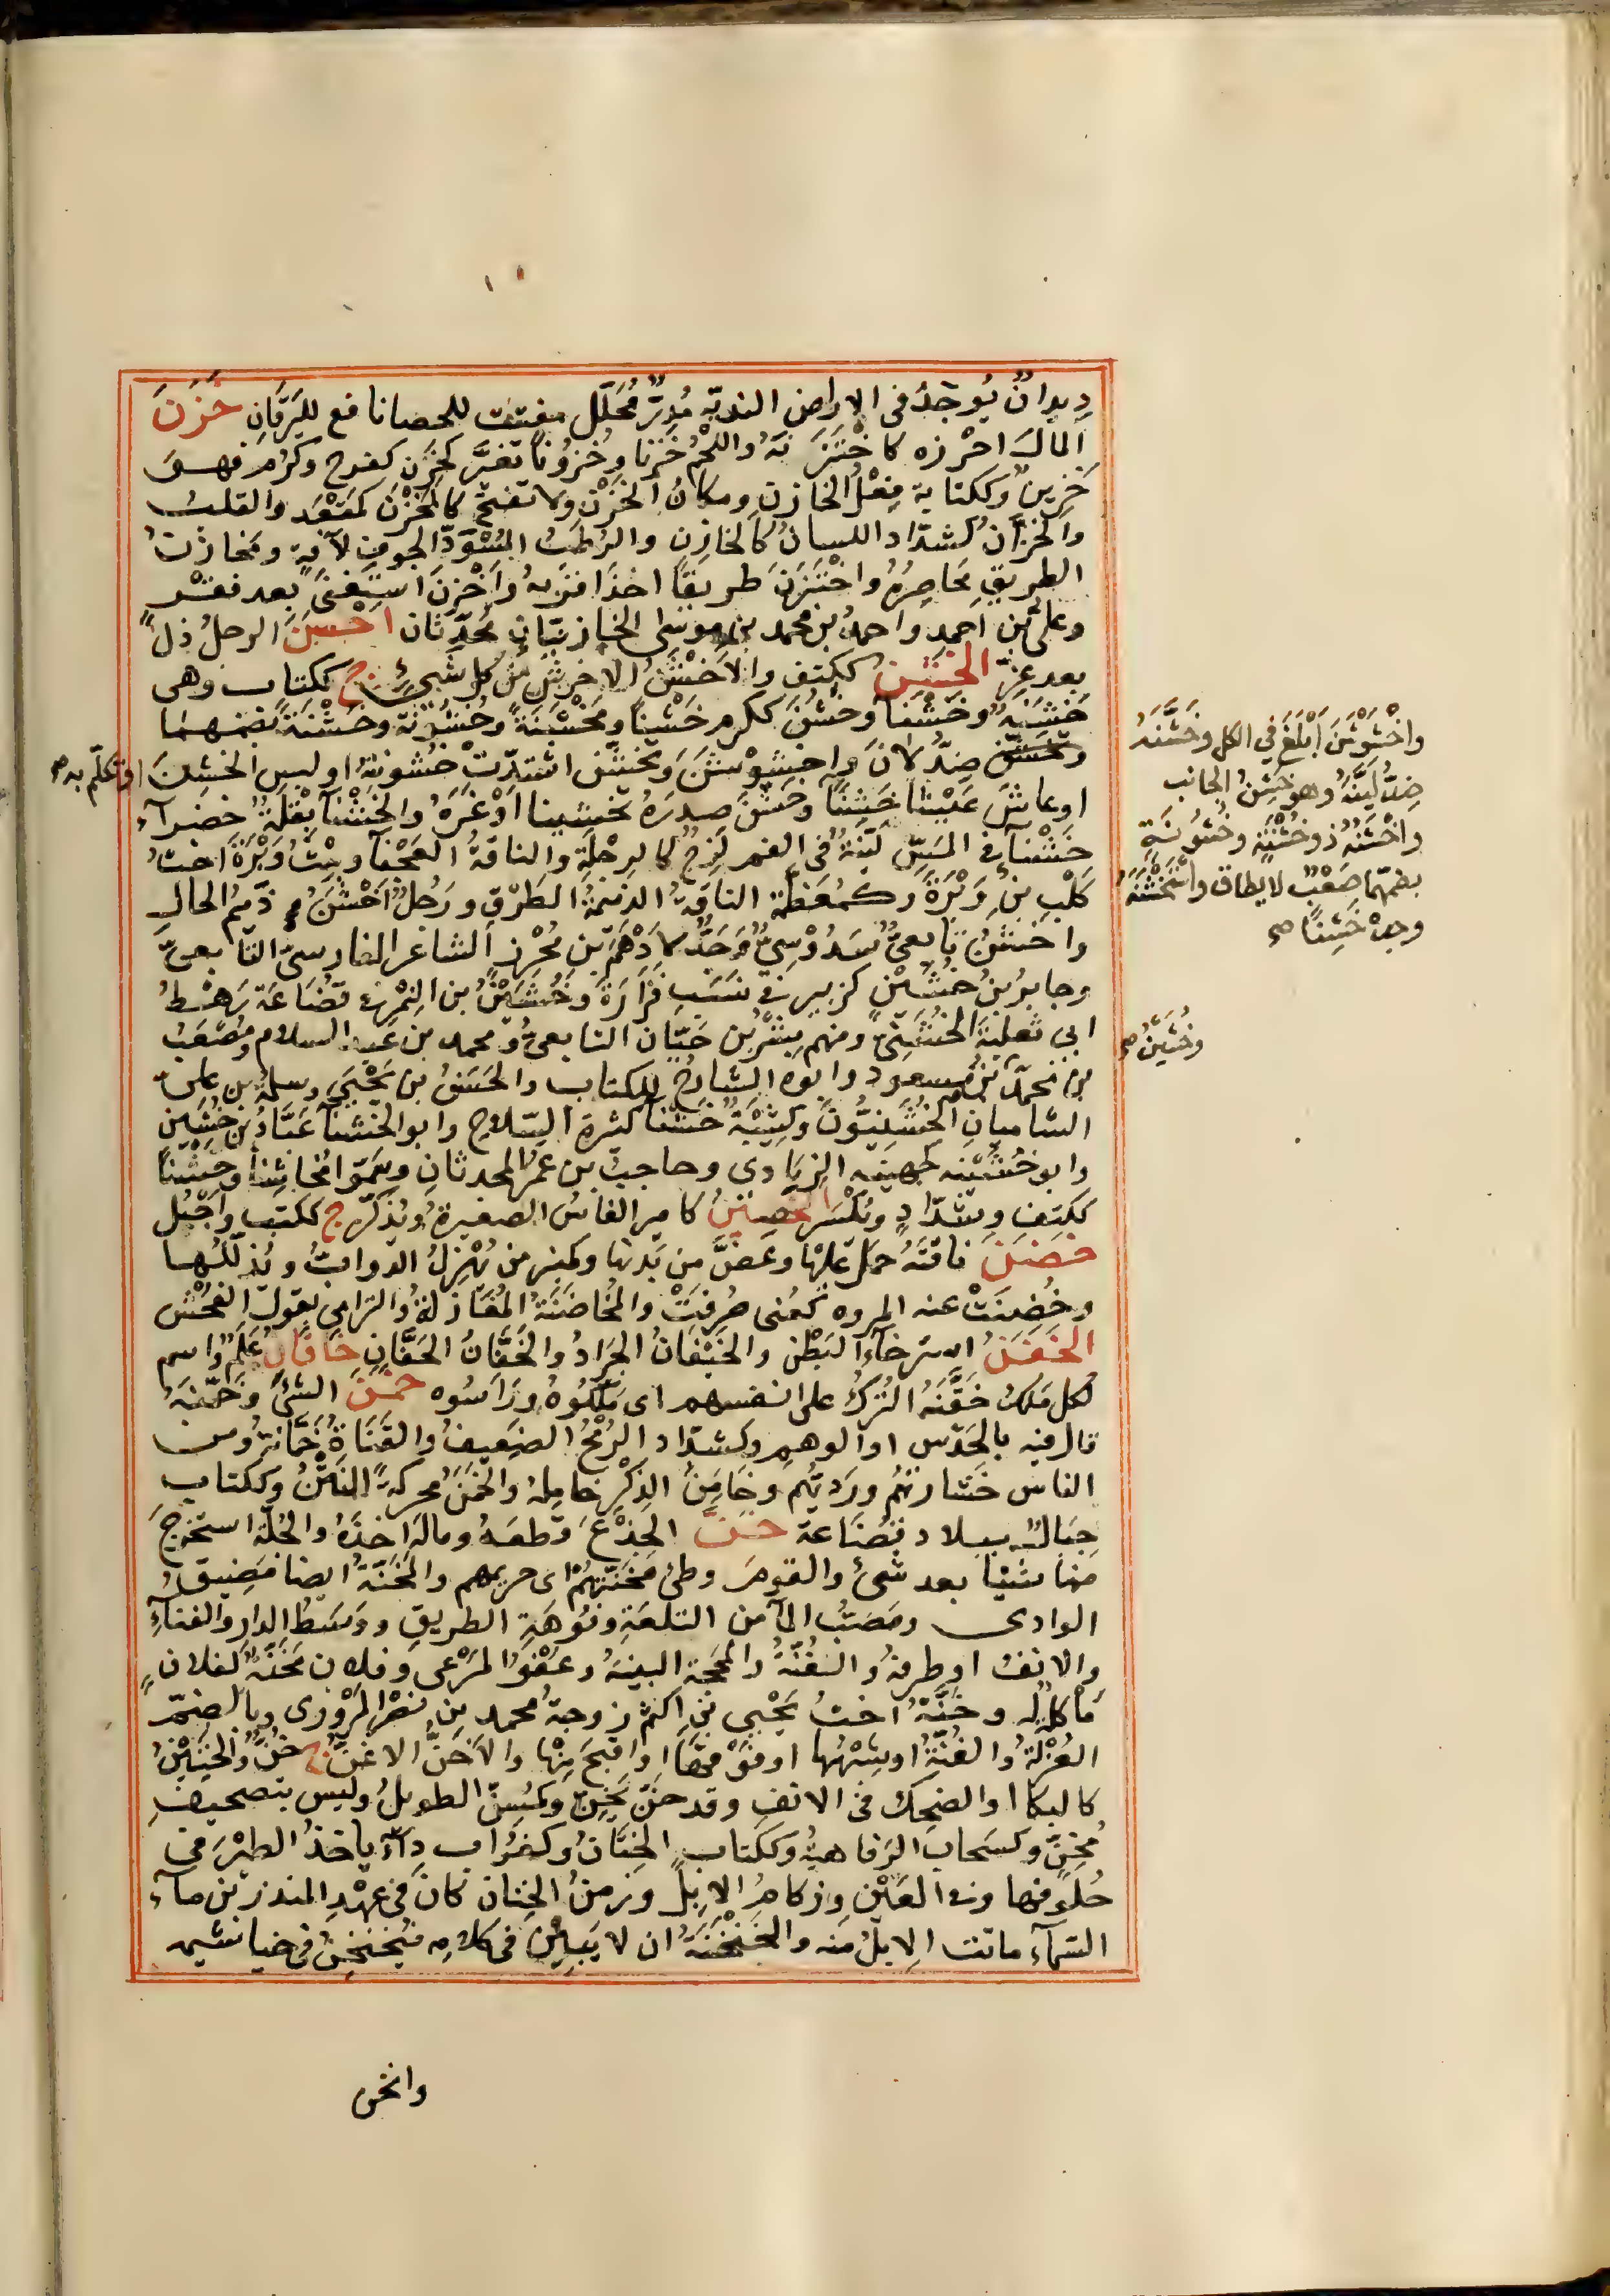 ديدانٌ يُوجَدُ فى الاراضى النديّة مُدِرٌّ مُحَلّل مفتت للحصا نافع لليَرَقانِ خَزَنَ
المالَ احْرزه كاخْتَزَنَهُ واللحْمُ خَزَنًا وخُزُونًا تغيَّر كخَزِنَ كفرح وكرُم فهو
خَزِينٌ وككتابة فِعْلُ الخازنِ ومكانُ الخَزْنِ ولا تفتح كالمَخْزَن كمَقْعَد والقلبُ
والخَزّانُ كشدّاد اللسانُ كالخازِنِ والرُطبُ المُسْوَدّ الجوفِ لآفةٍ ومَخازنُ
الطريقِ مَخاصِرُهُ واخْتَزَنَ طريقًا اخذ اقربهُ واَخْزَنَ استغنَى بعد فقر
وعلىُّ بن احمد واحمدُ بن محمد بن موسى الخازِنيّانِ مُحَدِّثان اخْسَنَ الرجلُ ذلّ
بعد عِزّ الخَشِنُ ككتف والاَخْشَنُ الاخرشُ من كل شىءٍ ج ككتاب وهى
خَشِنَةٌ وخَشْنا وخَشُنَ ككرم خَشْنًا ومَخْشَنَةً وخُشُونَةً وخُشْنَةً بضمهما
وتَخَشَّنَ ضِدّ لانَ واخشَوْشَنَ وتخشّن اشتدّتْ خُشونتهُ او لبس الخشِنَ
او عاشَ عَيْشًا خَشِنًا وخشّنَ صدرَهُ تخشينا اَوْغَرَهُ والخَشْناَ بَقْلَةٌ خضرآء
خَشْنآ فى المَسِّ ليّنةٌ فى الفم لَزِجٌ كالرِجْلَةِ والناقةُ العَجْفآ وبِنْتُ وَبْرَةَ اختُ
كلْبِ بنِ وَبْرَةَ وكمُعَظّمة الناقةُ الذميمةُ الطَرْقِ ورَجُلٌ اَخْشَنُ ذَميمُ الحالِ
واخشنُ تابعىٌّ سَدُوْسِىٌّ وجَدٌّ لاَدْهَم بن مُحْرِز الشاعر الفارسىّ التابعىّ
وجابرُ بنُ خُشَيْنٍ كزبير فى نسَبِ فَزَارَةَ وخُشَيْنٌ بن النِمْر فى قضاعَة رَهْطُ
ابى ثعلبةَ الخُشَنِىّ ومنهم بِشْرُ بن حَيّان التابعىُّ ومحمد بن عبد السلام ومُصْعَبُ
بن محمّد بن مسعود وابوه الشارحُ للكتاب والحَسَنُ بن يَحْيَى ومسلمة بن علىّ
الشاميانِ الخُشَنيُّونَ وكتيبَةٌ خَشْنآ كثيرة السّلاحِ وابو الخَشْنآ عَبّادُ بن خُشَينٍ
وابو خُشَيْنه كجهينه الزِيَادى وحاجبُ بن عُمَر المحدثانِ وسَمّوا مُخاشِنا وخَشِنًا
ككتِفٍ وشدّادٍ وتُكْسَر الخَصِينُ كامير الفاسُ الصغيرةُ ويُذَكّر ج ككتب واَجْبُل
خَضَنَ ناقتَهُ حمَل عليْها وعَضَّ من بَدنها وكمنبر من يُهْزِلُ الدوابَّ ويُذلّلها
وخُضِنَتْ عنه المروه كعُنى صُرِفَتْ والمُخاضَنَةُ المُغَازلةُ والترامى بقولِ الفُحْشِ
الخَفَنُ استرخآءُ البَطْنِ والخَيْفانُ الجَرادُ والخَفّانُ الخَفّانِ خَاقانُ عَلَمٌ واسم
لكل مَلِكٍ خَقَّنَهُ التُركُ على انفسهم اى مَلّكُوهُ ورَاَسُوه خمَنَ الشىَ وخَمّنَهُ
قال فيه بالحَدْس او الوهمِ وكشدّاد الرُمْحُ الضعيفُ والقَناةُ خَمّانةٌ ومن
الناس خشارتهُم ورَديُّهم وخامِنُ الذِكْر خامِلهُ والخَمَنُ محركةً النَتْنُ وككتاب
جِبالٌ ببلاد قضَاعة خَنَّ الجِذْعَ قطعَهُ ومالَه اخذَهُ والجُلّة استخرجَ
منها شيئا بعد شىءٍ والقومَ وطى مَخَنّتهُم اى حريمهم والمَخَنّةُ ايضا مَضِيقُ
الوادى ومَصَبُّ المآ من التلعَةِ وفُوْهَةِ الطريقِ ووسَطُ الدار والفناءِ
والانفُ او طرفهُ والغُنّةُ والمحجة البينهُ وعَفْوُ المَرْعى وفلان مَخَنّةٌ لفلان
مَأكلةٌ له وخَنّةُ اختُ يَحْيى بن اكثم زوجةُ محمد بن نصْر المَرْوزى وبالضمّ
الغُرْلةُ والغُنّةُ او شبْهُها او فَوْقها او اقبحَ منها والاَخَنّ الاغنّ ج خُنٌّ والخَنِيْنُ
كالبكا او الضحِك فى الانفِ وقد خَنّ يَخِنُّ وكمُسِنّ الطويلُ وليس بتصحيفِ
مُخِنٍّ وكسَحاب الرَفاهيةُ وككتاب الخِتانُ وكغُراب دآءٌ ياخذُ الطيْرَ فى
حُلوقها وفى العَيْنِ وزكامُ الابِل وزمنُ الخنان كان فى عهْدِ المنذر بن مآء
السَمآء ماتت الابلُ منه والخَنْخَنَةُ ان لا يَبِيْنَ فى كلامِه فيُخَنْخِنُ فى خياشيمه
وانخن
واخْشَوْشَنَ اَبْلَغَ فى الكل وخَشَّنَهُ
ضِدُّ ليّنَهُ وهو خَشِنُ الجانب
واخْشَنُهُ ذو خُشْنَةٍ وخُشُونَةٍ
بضمّهما صَعْبٌ لا يطاق واسْتَخْشَنَهُ
وجده خَشِنًا صح
وخُشَيْنٌ صح
او تكلّم به صح